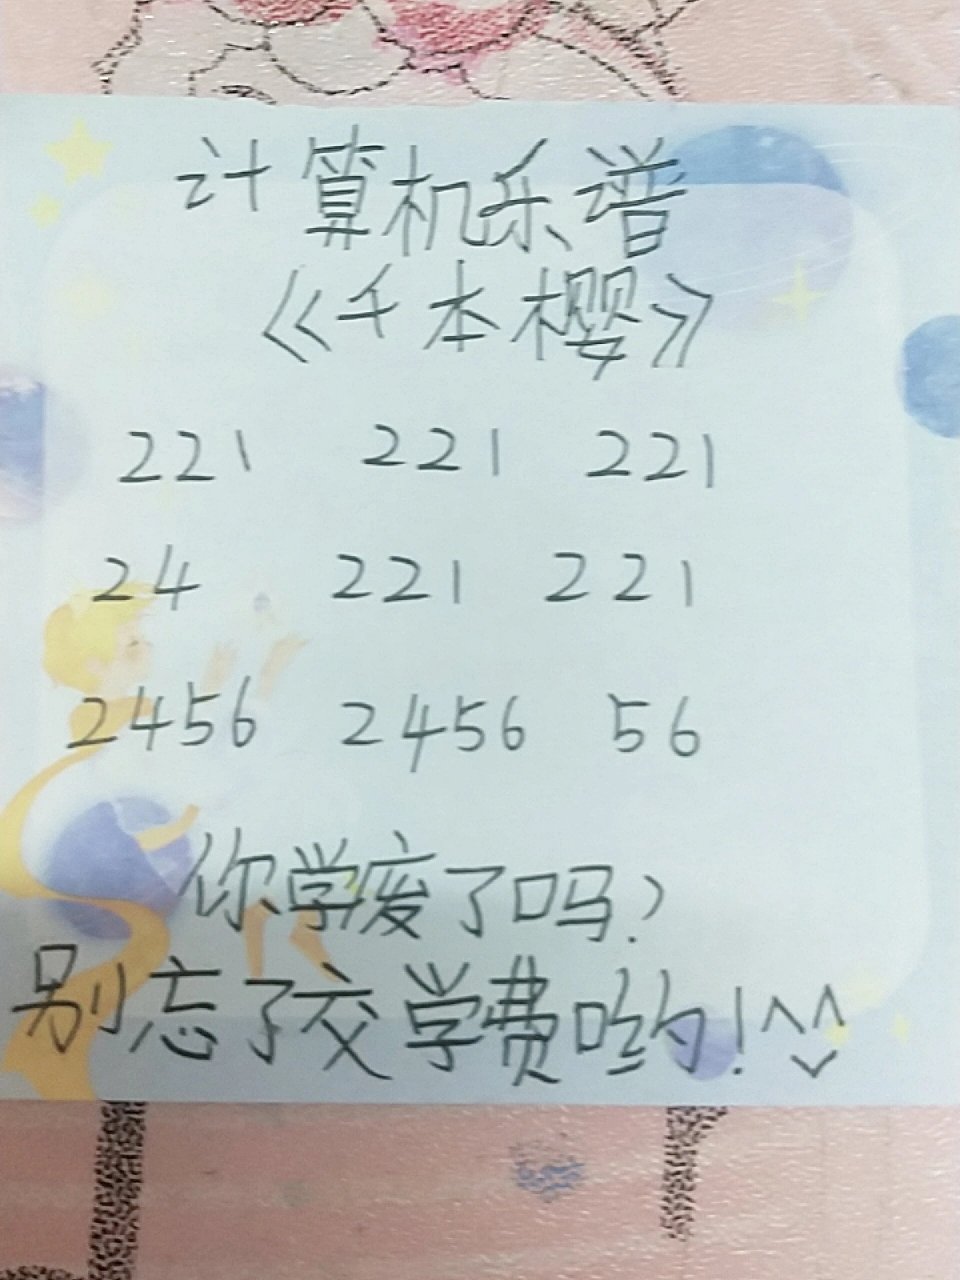 计算机乐谱
《千本樱》
221 221 221
24 221 221
2456 2456 56
你学废了吗?
别忘了交学费哟!^^